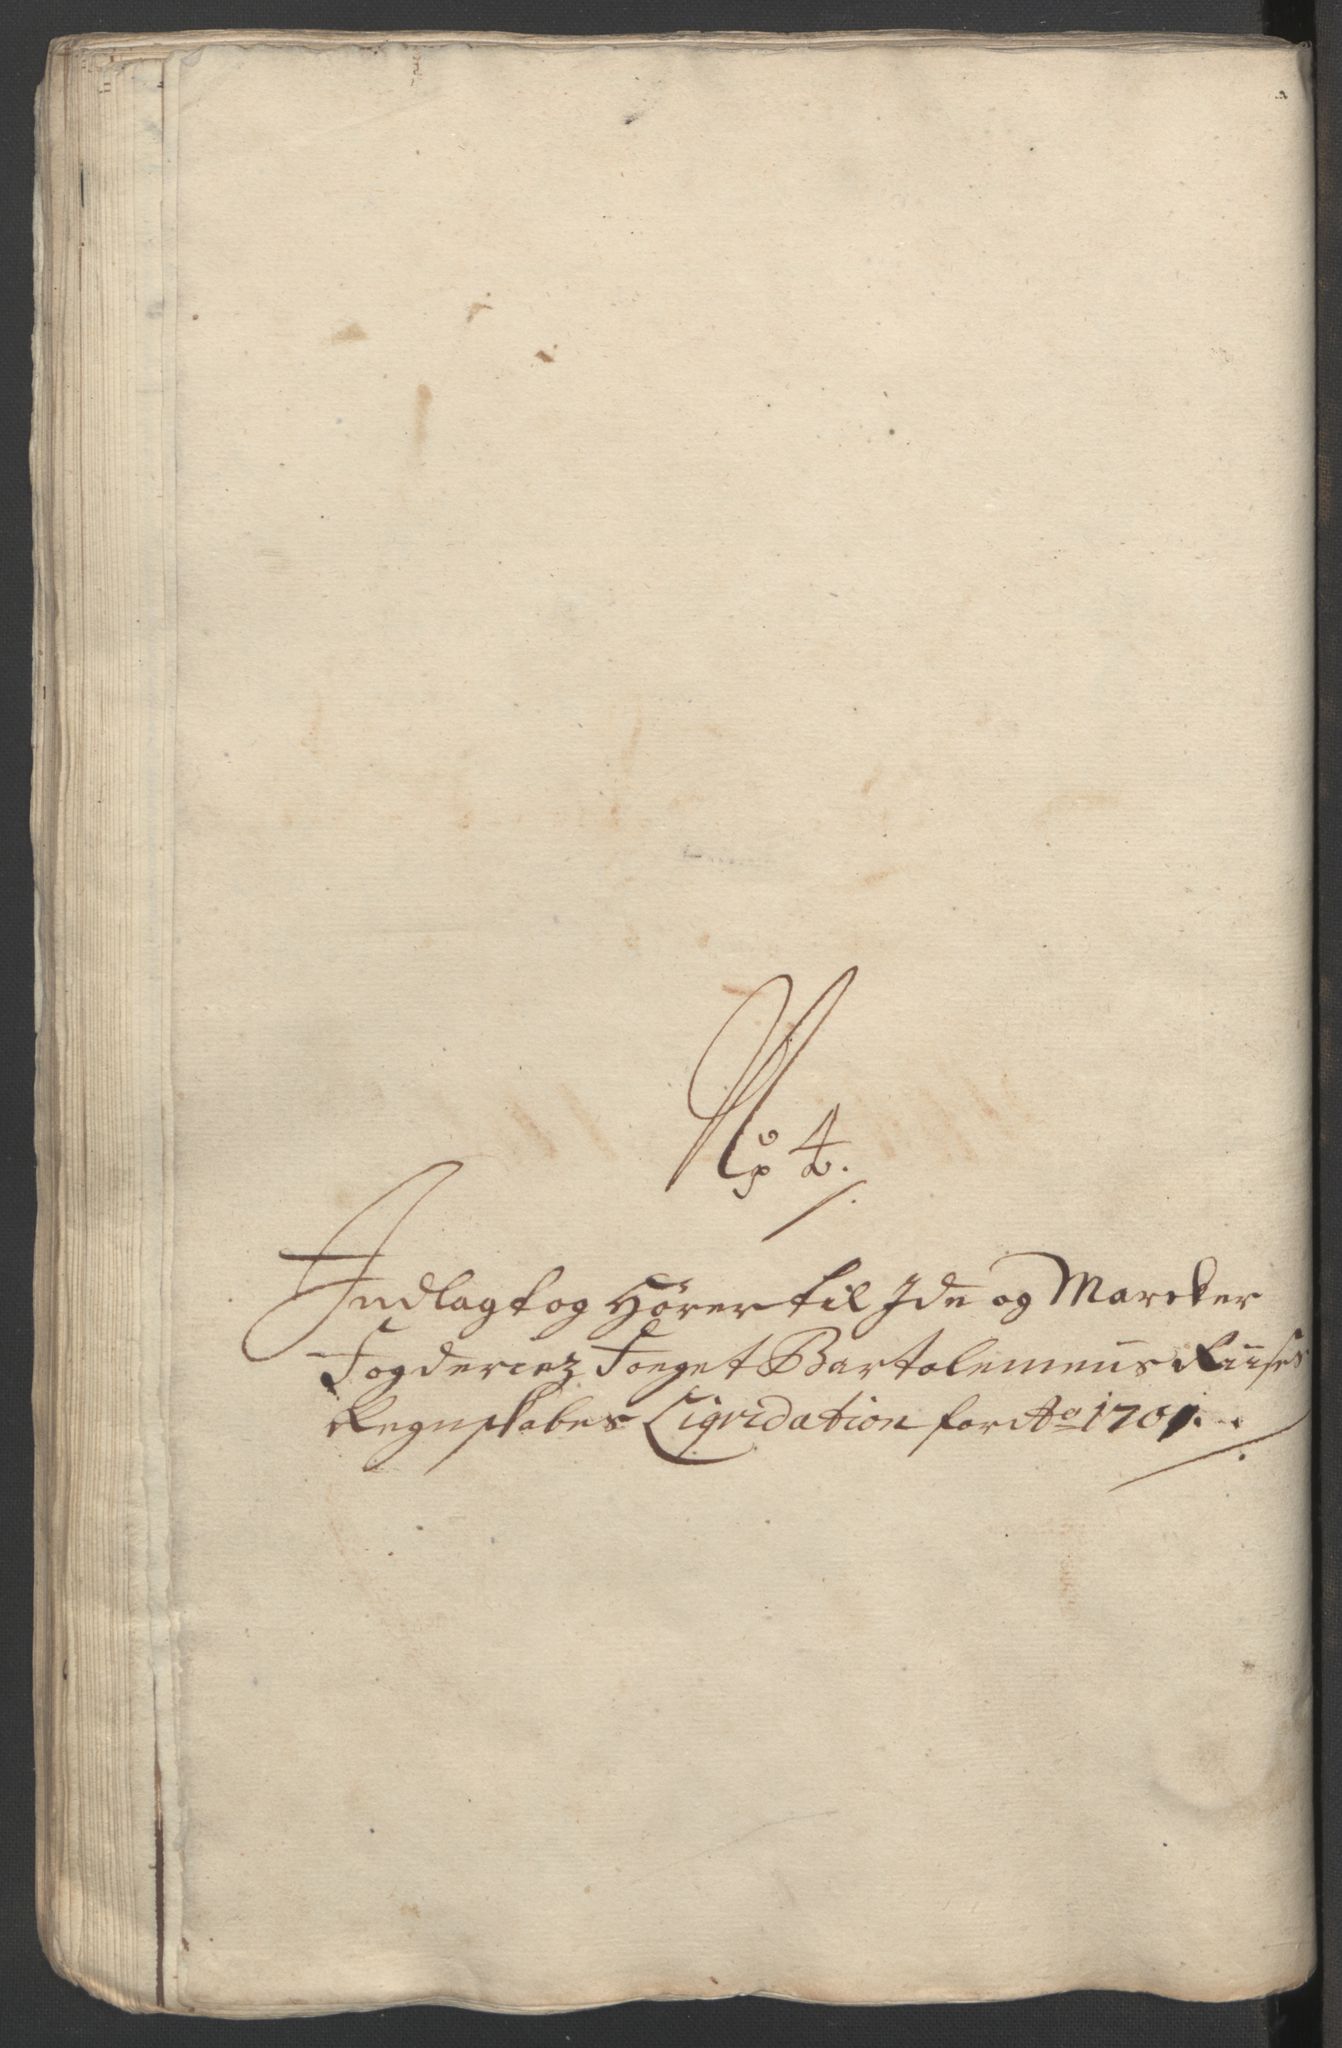 No 4.
Indlagt og Hörer til Ide og Marcker
Fogderiez Foeget Bartolemeus Ruuses
Regnskabes Liqvidation for Ao 1701.